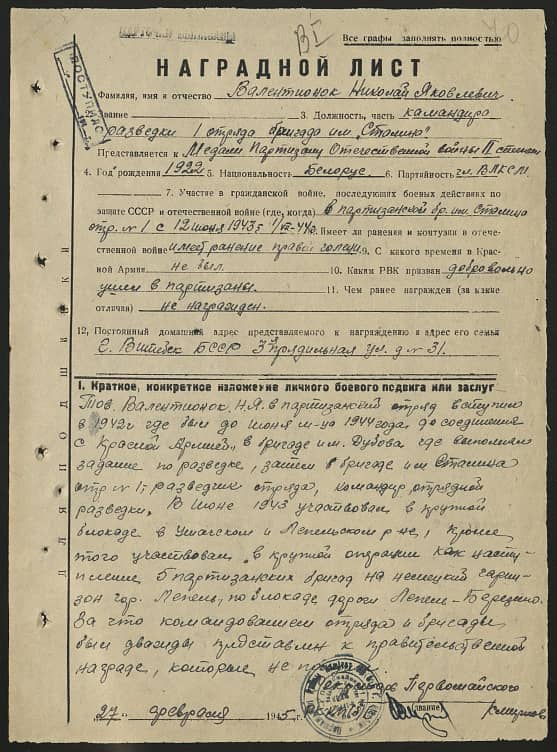 Все графы заполнять полностью
НАГРАДНОЙ ЛИСТ
Фамилия, имя и отчество Валентионок Николай Яковлевич.
2. Звание 3. Должность, часть командира
разведки 1 отряда бригада им. Сталина"
Представляется к Медали Партизану Отечественной войны II степени
4. Год рождения 1922 5. Национальность Белорус 6. Партийность чл. ВЛКСМ
7. Участие в гражданской войне, последующих боевых действиях по
защите СССР и отечественной войне (где, когда) в партизанской бр. им. Сталина
отр. №1 с 12 июня 1943 г. 1/VII-44 г. 8. Имеет ли ранения и контузии в отече-
ственной войне имеет ранение правой голени 9. С какого времени в Крас-
ной Армии не был. 10. Каким РВК призван добровольно
ушел в партизаны. 11. Чем ранее награжден (за какие
отличия) не награжден.
12. Постоянный домашний адрес представляемого к награждению и адрес его семьи
г. Витебск БССР 3я Прядильная ул. д № 31.
I. Краткое, конкретное изложение личного боевого подвига или заслуг
Тов. Валентионок, Н.Я. в партизанский отряд вступил
в 1942 г где был до июня м-ца 1944 года, до соединения
с Красной Армией, в бригаде им. Дубова где выполнял
задание по разведке, затем в бригаде им Сталина
отр. № 1, разведчик отряда, командир отрядной
разведки. В июне 1943 участвовал в крупной
блокаде в Ушачском и Лепельском р-не, кроме
того участвовал в крупной операции как насту-
пление 5 партизанских бригад на немецкий гарни-
зон гор. Лепель, по блокаде дороги Лепель-Березино.
За что командованием отряда и бригады
был дважды представлен к правительственной
награде, которые не
Первомайского
27 февраля 1945 г.
(звание
ДЛЯ ПОДШИВКИ